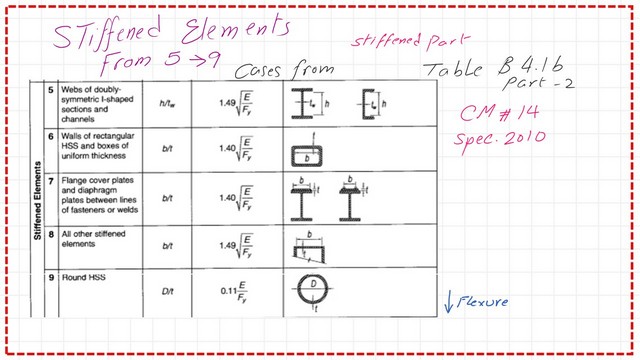 STiffened Elements
From 5 → 9
stiffened part
Cases from
Table B 4.1b
part - 2
CM # 14
Spec. 2010
Stiffened Elements
5 Webs of doubly-
symmetric I-shaped
sections and
channels
h/tw
1.49√E/Fy
tw h
tw h
6 Walls of rectangular
HSS and boxes of
uniform thickness
b/t
1.40√E/Fy
t
b
7 Flange cover plates
and diaphragm
plates between lines
of fasteners or welds
b/t
1.40√E/Fy
b t
b t
8 All other stiffened
elements
b/t
1.49√E/Fy
b
t
9 Round HSS
D/t
0.11 E/Fy
D
t
↓ Flexure